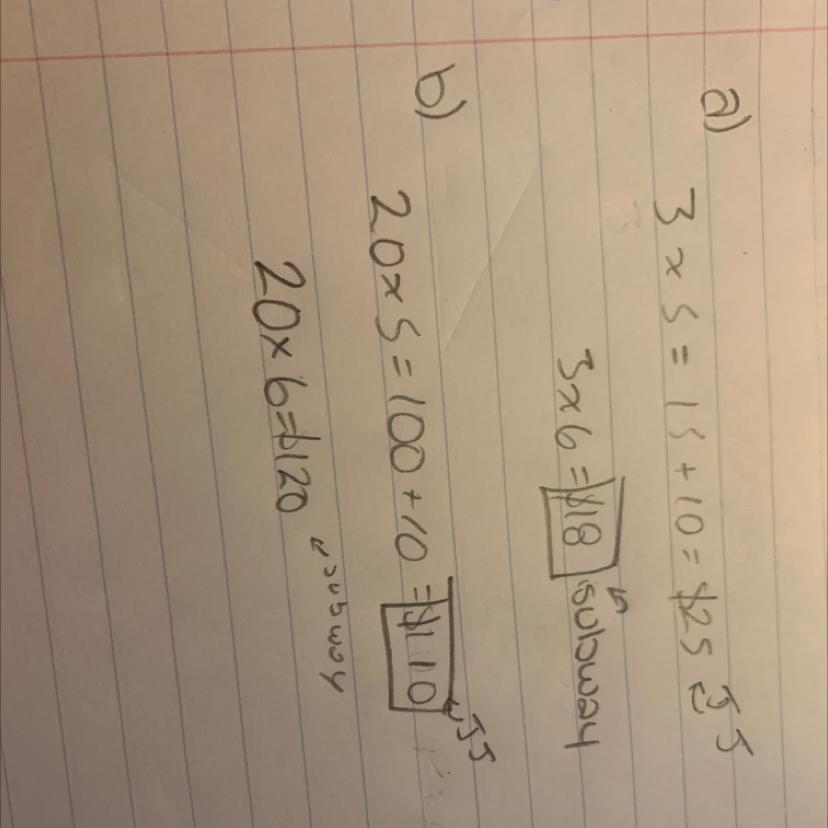 a) 3 x 5 = 15 + 10 = $25 JJ
3x6 = $18 subway
b) 20x5=100+10=$110 JJ
20x6=$120 subway